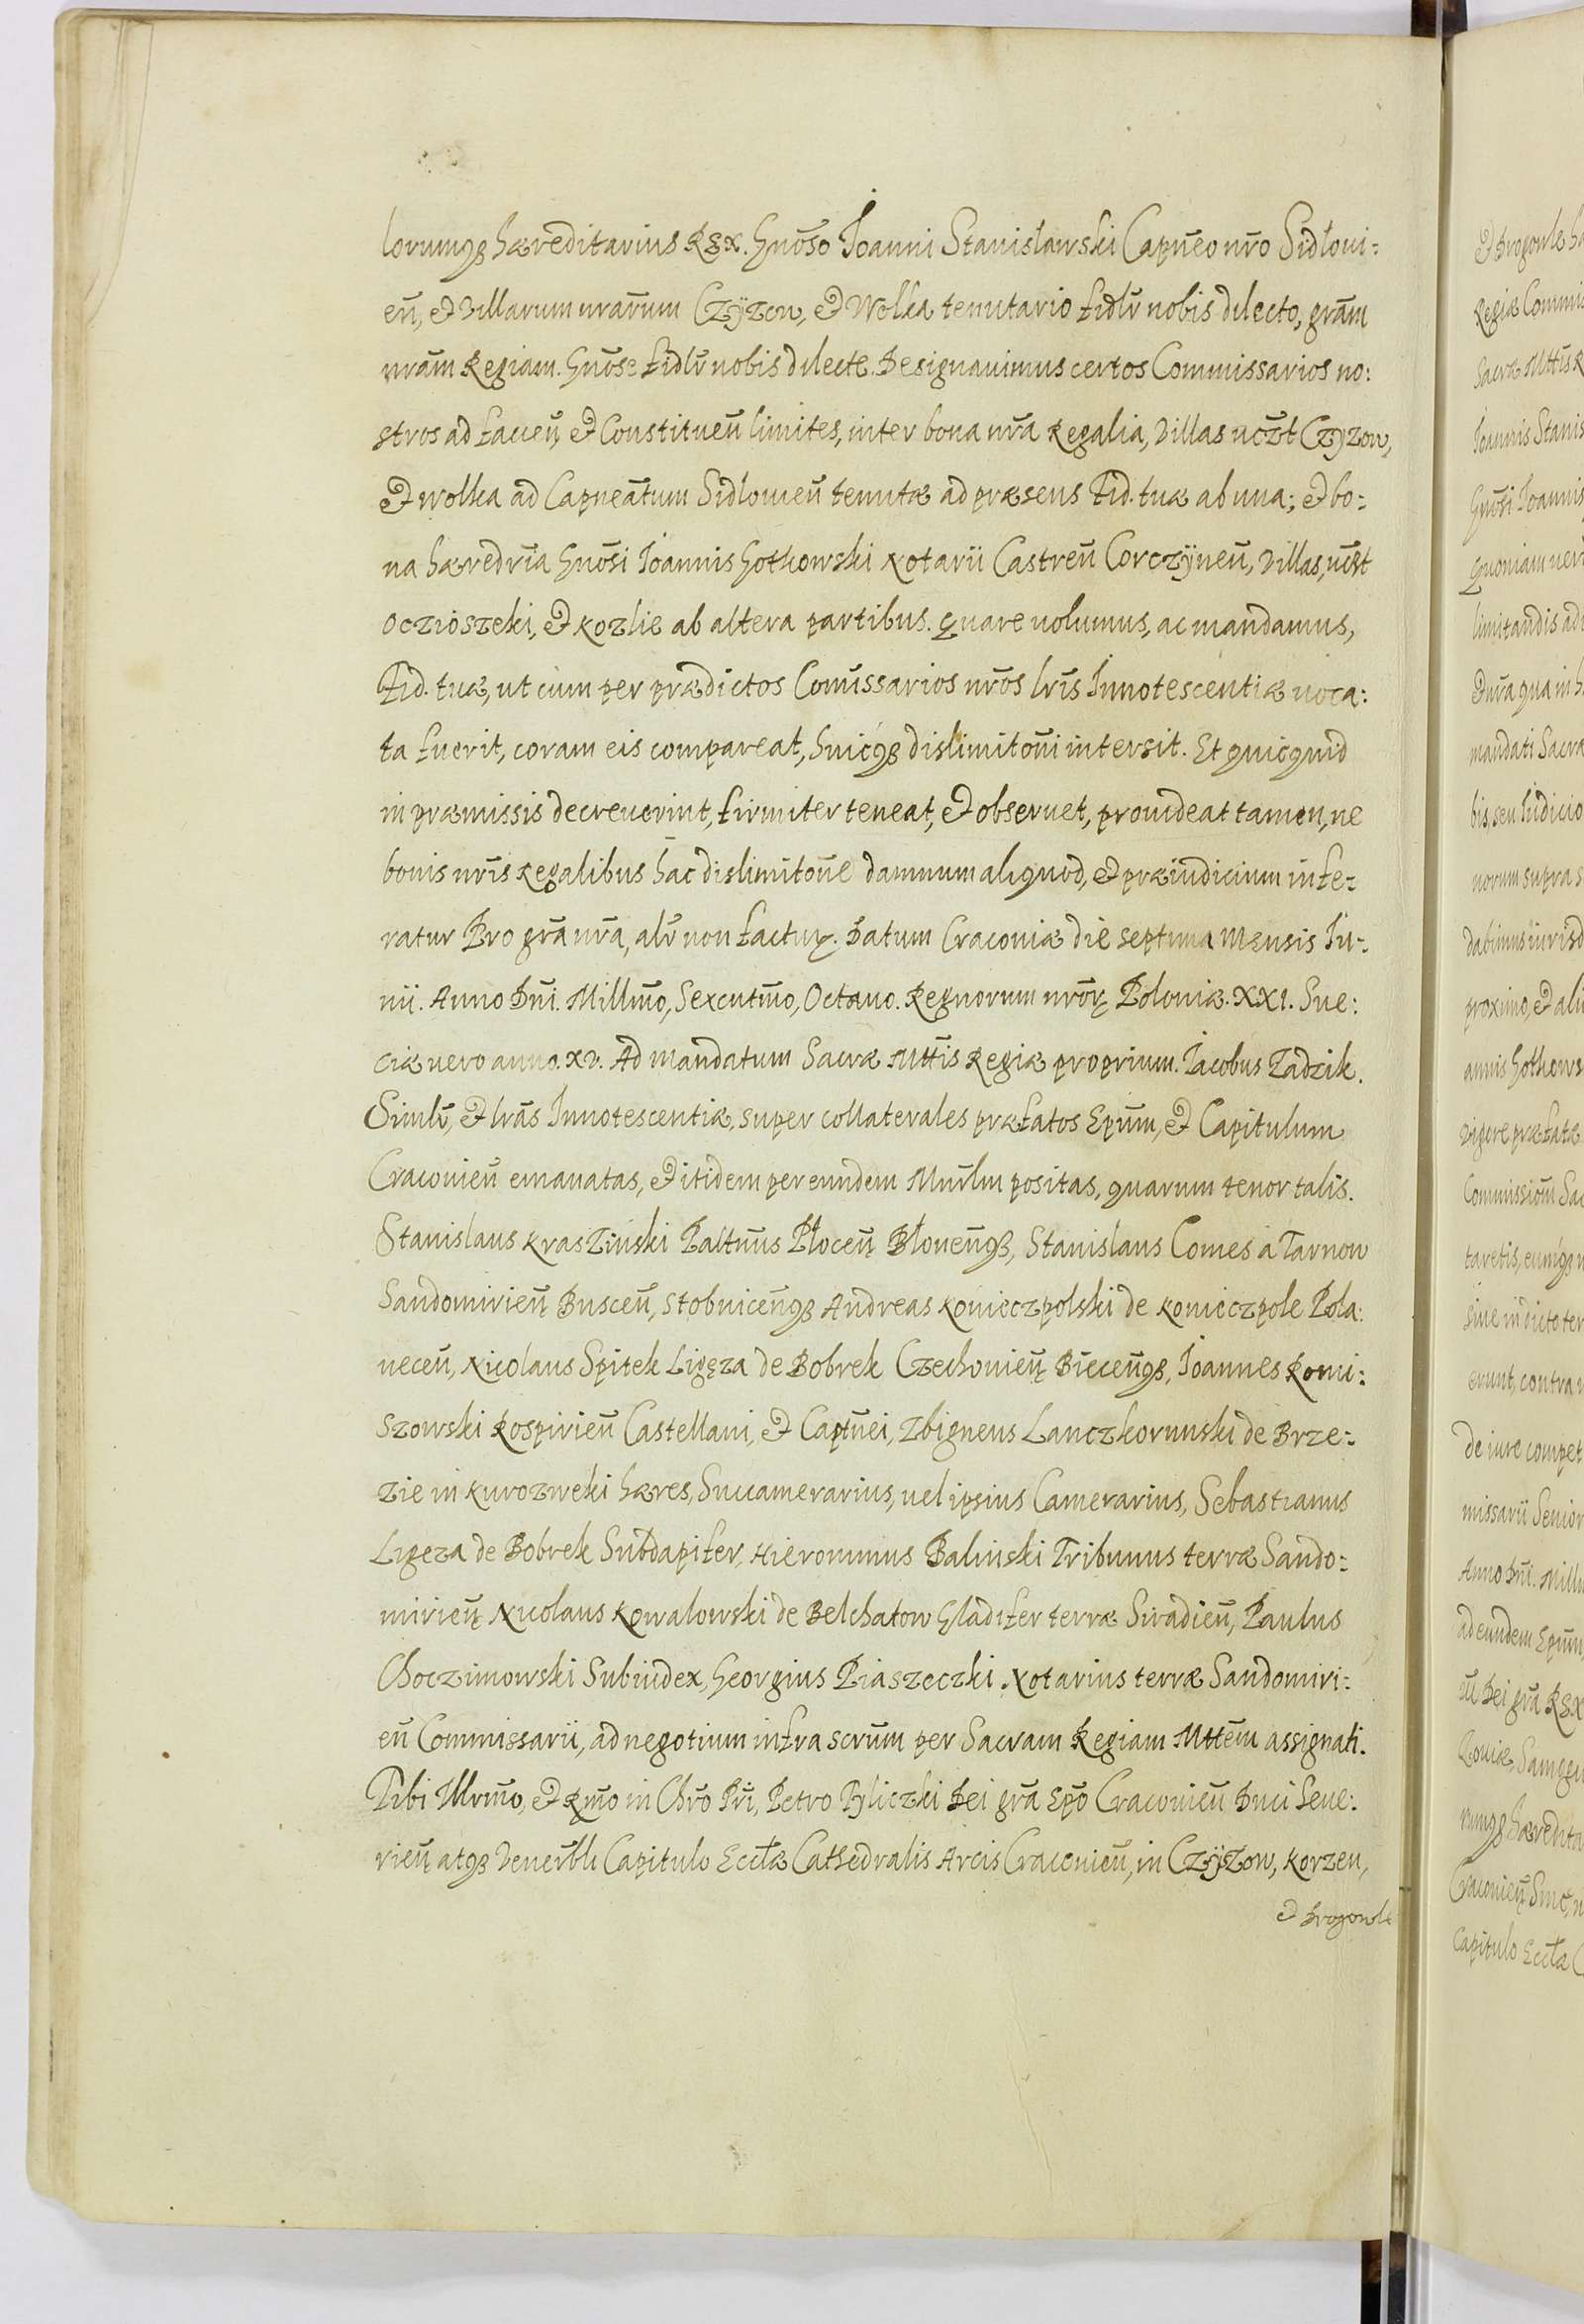 lorumq₃ hæreditarius Rex. Gnōso Ioanni Stanisławski Capnēo nr̄o Sidłoui:
eñ, et Villarum nrārum Czÿzow, et Wolka tenutario fidlr̄ nobis dilecto, grām
nrām Regiam. Gnōse fidlr̄ nobis dilecte. Designauimus certos Commissarios no:
stros ad facieñ, et Constitueñ limites, inter bona nrā Regalia, Villas uczt̄ Czyzow,
et wolka ad Capneātum Sidłouieñ tenutæ ad præsens Fid. tuæ ab una; et bo:
na hæredrīa Gnōsi Ioannis Gotkowski Notarii Castreñ Corczÿneñ, Villas, uczt̄
Oczioszeki, et Kozlie ab altera partibus. Quare uolumus, ac mandamus,
Fid. tuæ, ut cum per prædictos Comīssarios nrōs lrīs Innotescentiæ uoca:
ta fuerit, coram eis compareat, huicq₃ dislimitōni intersit. Et quicquid
in præmissis decreuerint, firmiter teneat, et obseruet, prouideat tamen, ne
bonis nrīs Regalibus hac dislimitōne damnum aliquod, et præiudicium infe:
ratur Pro grā nrā, alr̄ non factur. Datum Cracouiæ die septima Mensis Iu:
nii. Anno Dnī. Millmō, Sexcntmō, Octauo. Regnorum nrōr Poloniæ. XXI. Sue:
ciæ uero anno. XV. Ad mandatum Sacræ Mttīs Regiæ proprium. Iacobus Zadzik.
Simlr̄, et lrās Innotescentiæ, super collaterales præfatos Epūm, et Capitulum
Cracouieñ emanatas, et itidem per eundem Mnrl̄m positas, quarum tenor talis.
Stanislaus Kraszinski Paltn̄us Płoceñ Błoneñq₃, Stanislaus Comes à Tarnow
Sandomirieñ Busceñ, stobniceñq₃ Andreas Koniecz̄polski de Konieczpole Pola:
neceñ, Nicolaus Spitek Ligęza de Bobrek Czechouieñ Bieceñq₃, Ioannes Komi:
szowski Rospirieñ Castellani, et Captn̄ei, Zbigneus Lanczkorunski de Brze:
zie in Kurozweki hæres, Succamerarius, uel ipsius Camerarius, Sebastianus
Ligeza de Bobrek Subdapifer, Hieronimus Balinski Tribunus terræ Sando:
mirieñ Nicolaus Kowalowski de Belchatow Gladifer terræ Siradieñ, Paulus
Choczimowski Subiudex, Georgius Piaszeczki Notarius terræ Sandomiri:
eñ Commissarii, ad negotium infra scrūm per Sacram Regiam Mttēm assignati.
Tibi Illrmō, et Rmō in Chrō Prī, Petro Tyliczki Dei grā Epō Cracouieñ Duci Seue:
rieñ atq₃ Venerbl̄i Capitulo Eccłæ Cathedralis Arcis Cracouieñ, in Czÿzow, Korzen,
et Drogowle